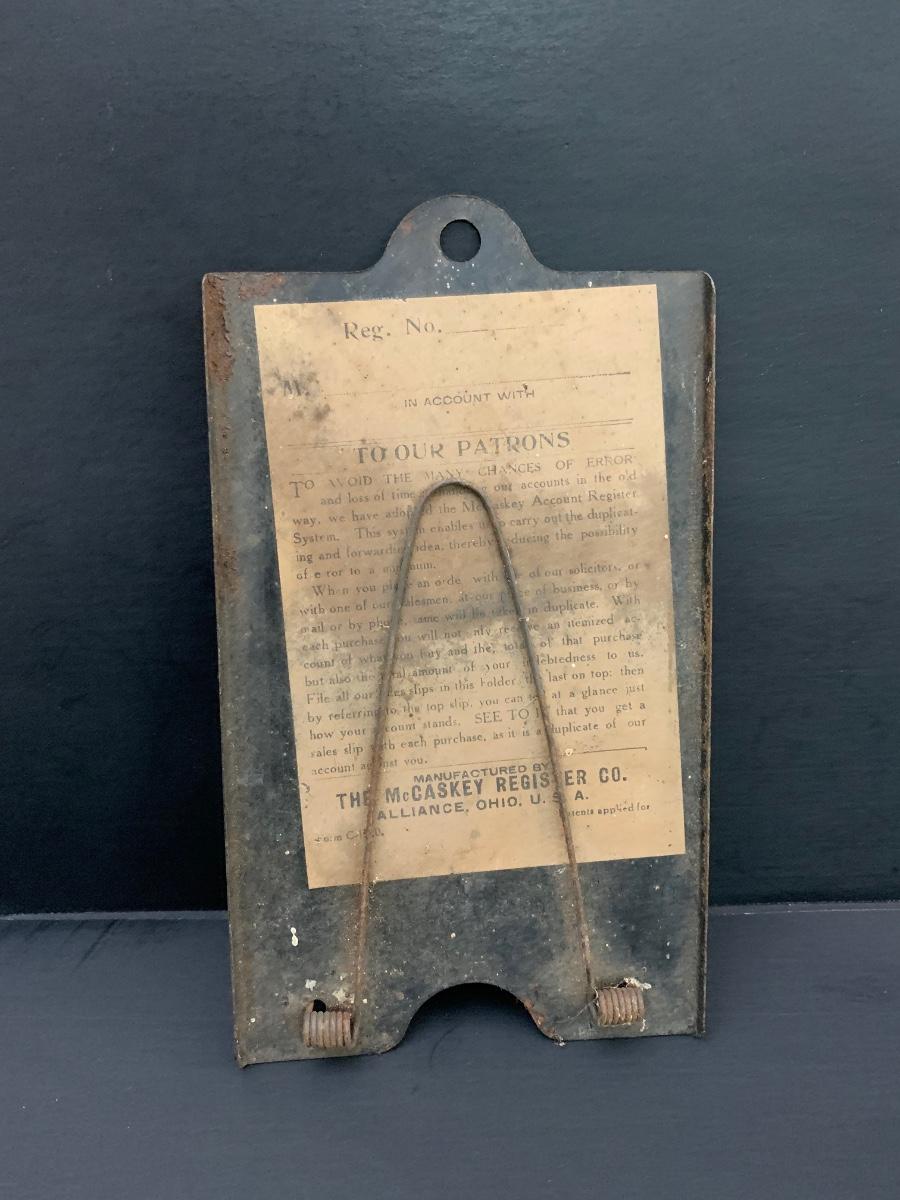 Reg. No.
M.
IN ACCOUNT WITH
TO OUR PATRONS
TO AVOID THE MANY CHANCES OF ERROR
and loss of time our accounts in the old
way, we have adopted the McCaskey Account Register
System. This system enables us to carry out the duplicat-
ing and forwarding idea, thereby reducing the possibility
of error to a minimum.
When you place an order with one of our solicitors, or
with one of our salesmen, at our place of business, or by
mail or by phone, same will be taken in duplicate. With
each purchase you will not only receive an itemized ac-
count of what you buy and the total of that purchase
but also the total amount of your indebtedness to us.
File all our sales slips in this Folder, the last on top: then
by referring to the top slip, you can tell at a glance just
how your account stands. SEE TO IT that you get a
sales slip with each purchase, as it is a duplicate of our
account against you.
MANUFACTURED BY
THE McCASKEY REGISTER CO.
ALLIANCE, OHIO, U. S. A.
Patents applied for
Form